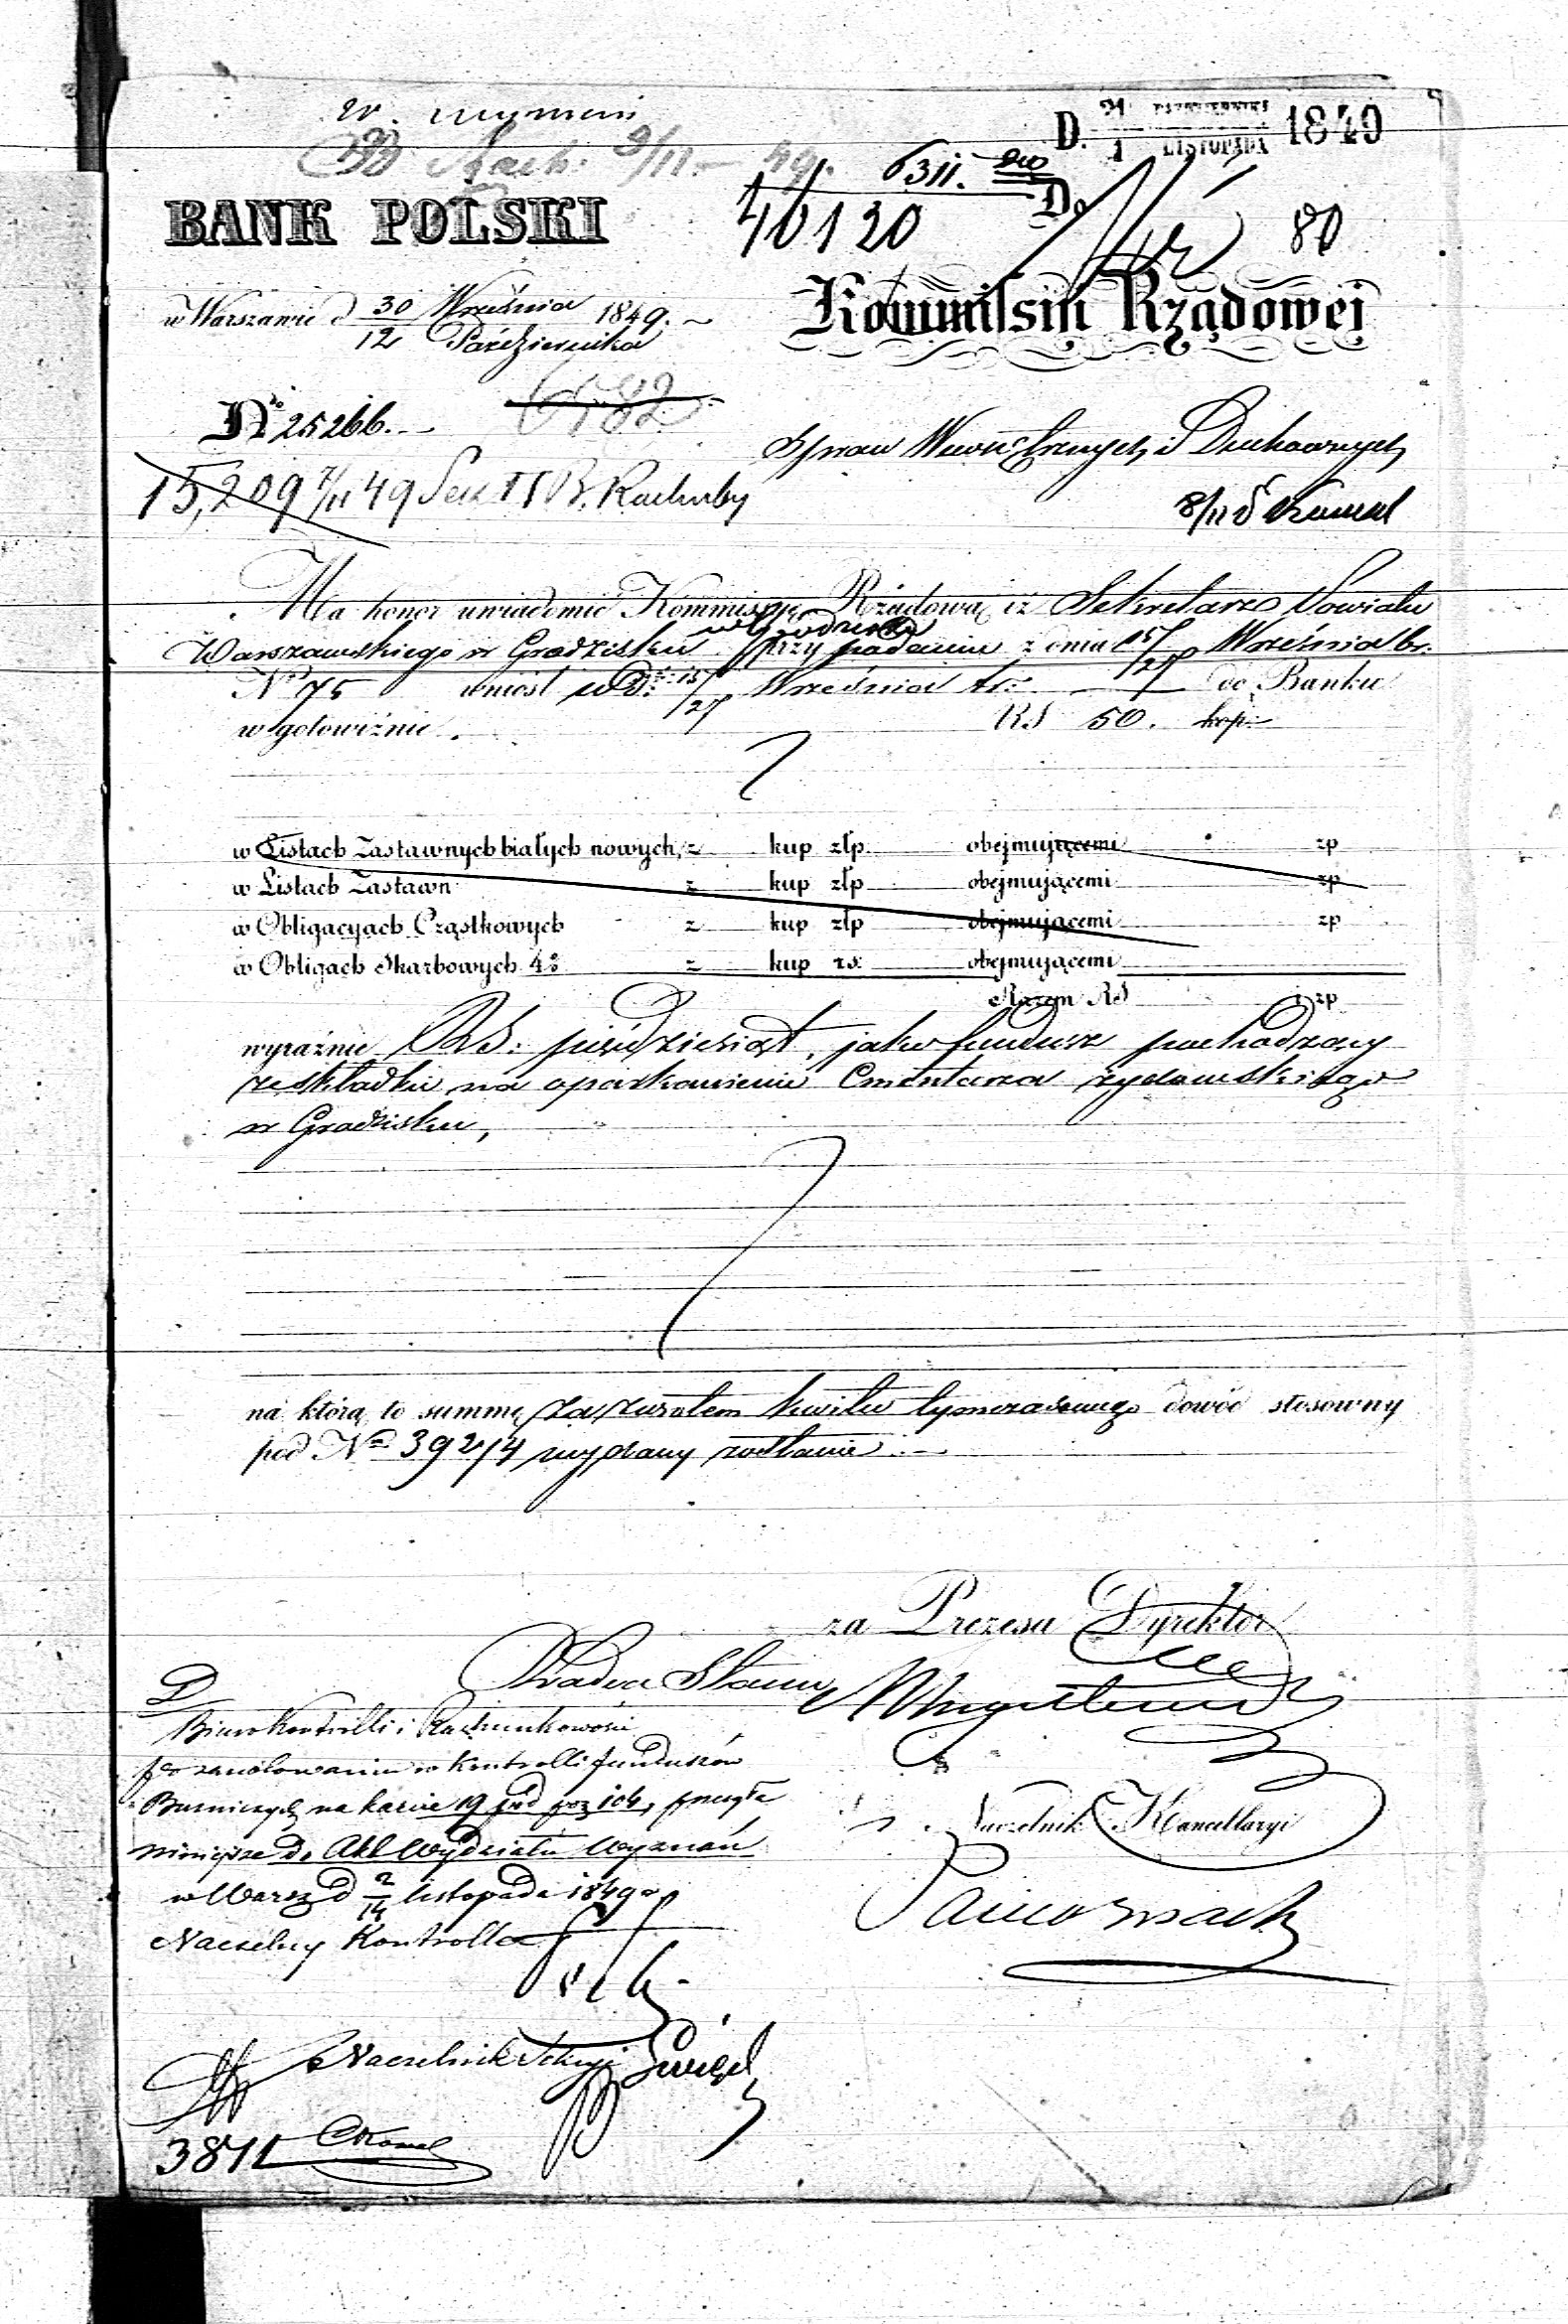 D. 1 PAZDZIERNIKA LISTOPADA 1849
6311.
BANK POLSKI
40120
Do
80
w Warszawie d 30/12 Września Października 1849.
Kommissyi Rządowej
No 25266.
6782
Spraw Wewnętrznych i Duchownych
15,209 7/11 49 Sek II B. Rachuby
8/11
Ma honor uwiadomić Kommissyę Rządową iż Sekretarz Powiatu
Warszawskiego w Grodzisku przy podaniu z dnia 15/27 Września br.
No 75 wniósł w d. 15/27 Września do Banku
w gotowiźnie. RS 50. kop:
w Listach Zastawnych białych nowych, z kup złp. obejmującemi zp
w Listach Zastawn z kup złp obejmującemi zp
w Obligacyach Cząstkowych z kup złp obejmującemi zp
w Obligach Skarbowych 4% z kup rs: obejmującemi
Razem RS zp
wyraźnie RS: pięćdziesiąt, jako fundusz pochodzący
ze składki na oparkanienie Cmentarza żydowskiego
w Grodzisku,
na którą to summę za zwrotem kwitu tymczasowego dowód stosowny
pod No 39214 wydany zostanie.
za Prezesa Dyrektor
Radca Stanu
Biuro Kontrolli i Rachunkowości
po zanotowaniu w Kontrolli funduszów
na karcie 19 pod poz 104, przesyła
niniejsze do Akt Wydziału Wyznań
w Warsz d 2/14 listopada 1849 r
Naczelnik Kancellaryi
Naczelny Kontroller
Naczelnik Sekcyi
3871